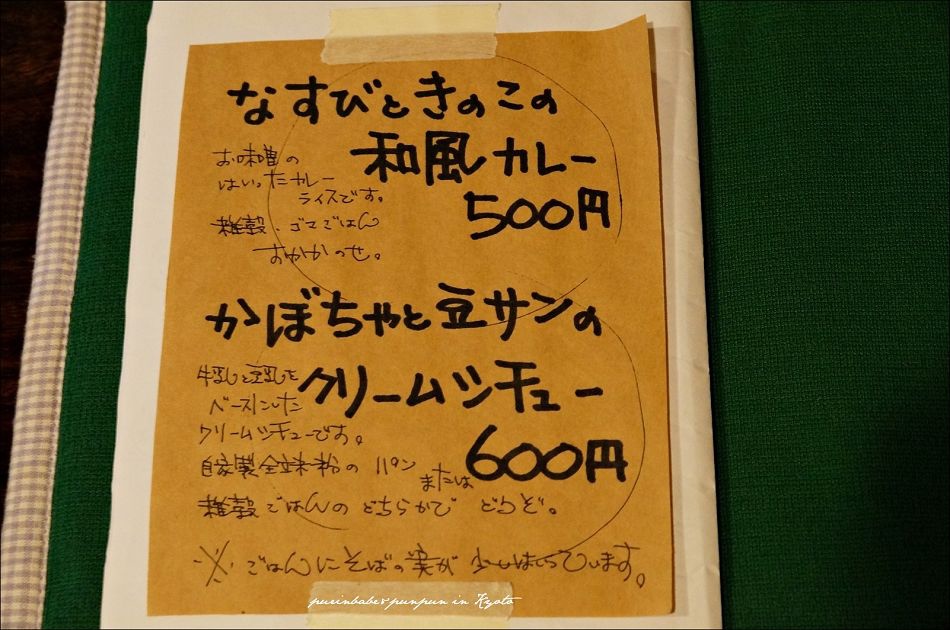 なすびときのこの
和風カレー
500円
お味噌の
はいったカレー
ライスです。
雑穀・ゴマごはん
おかかのせ。
かぼちゃと豆サンの
クリームシチュー
600円
牛乳と豆乳を
ベースにした
クリームシチューです。
自家製全粒粉のパン
または
雑穀ごはんのどちらかでどうぞ。
※ごはんにそばの実が少しはいっています。
purinbabe&punpun in Kyoto